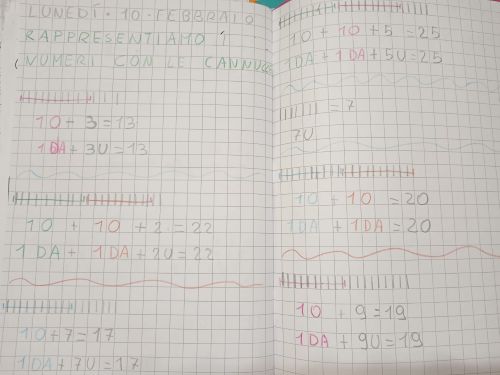 LUNEDÍ · 10 · FEBBRAIO
RAPPRESENTIAMO I
NUMERI CON LE CANNUCCE
10 + 3 = 13
1DA + 3U = 13
10 + 10 + 2 = 22
1DA + 1DA + 2U = 22
10 + 7 = 17
1DA + 7U = 17
10 + 10 + 5 = 25
1DA + 1DA + 5U = 25
= 7
7U
10 + 10 = 20
1DA + 1DA = 20
10 + 9 = 19
1DA + 9U = 19